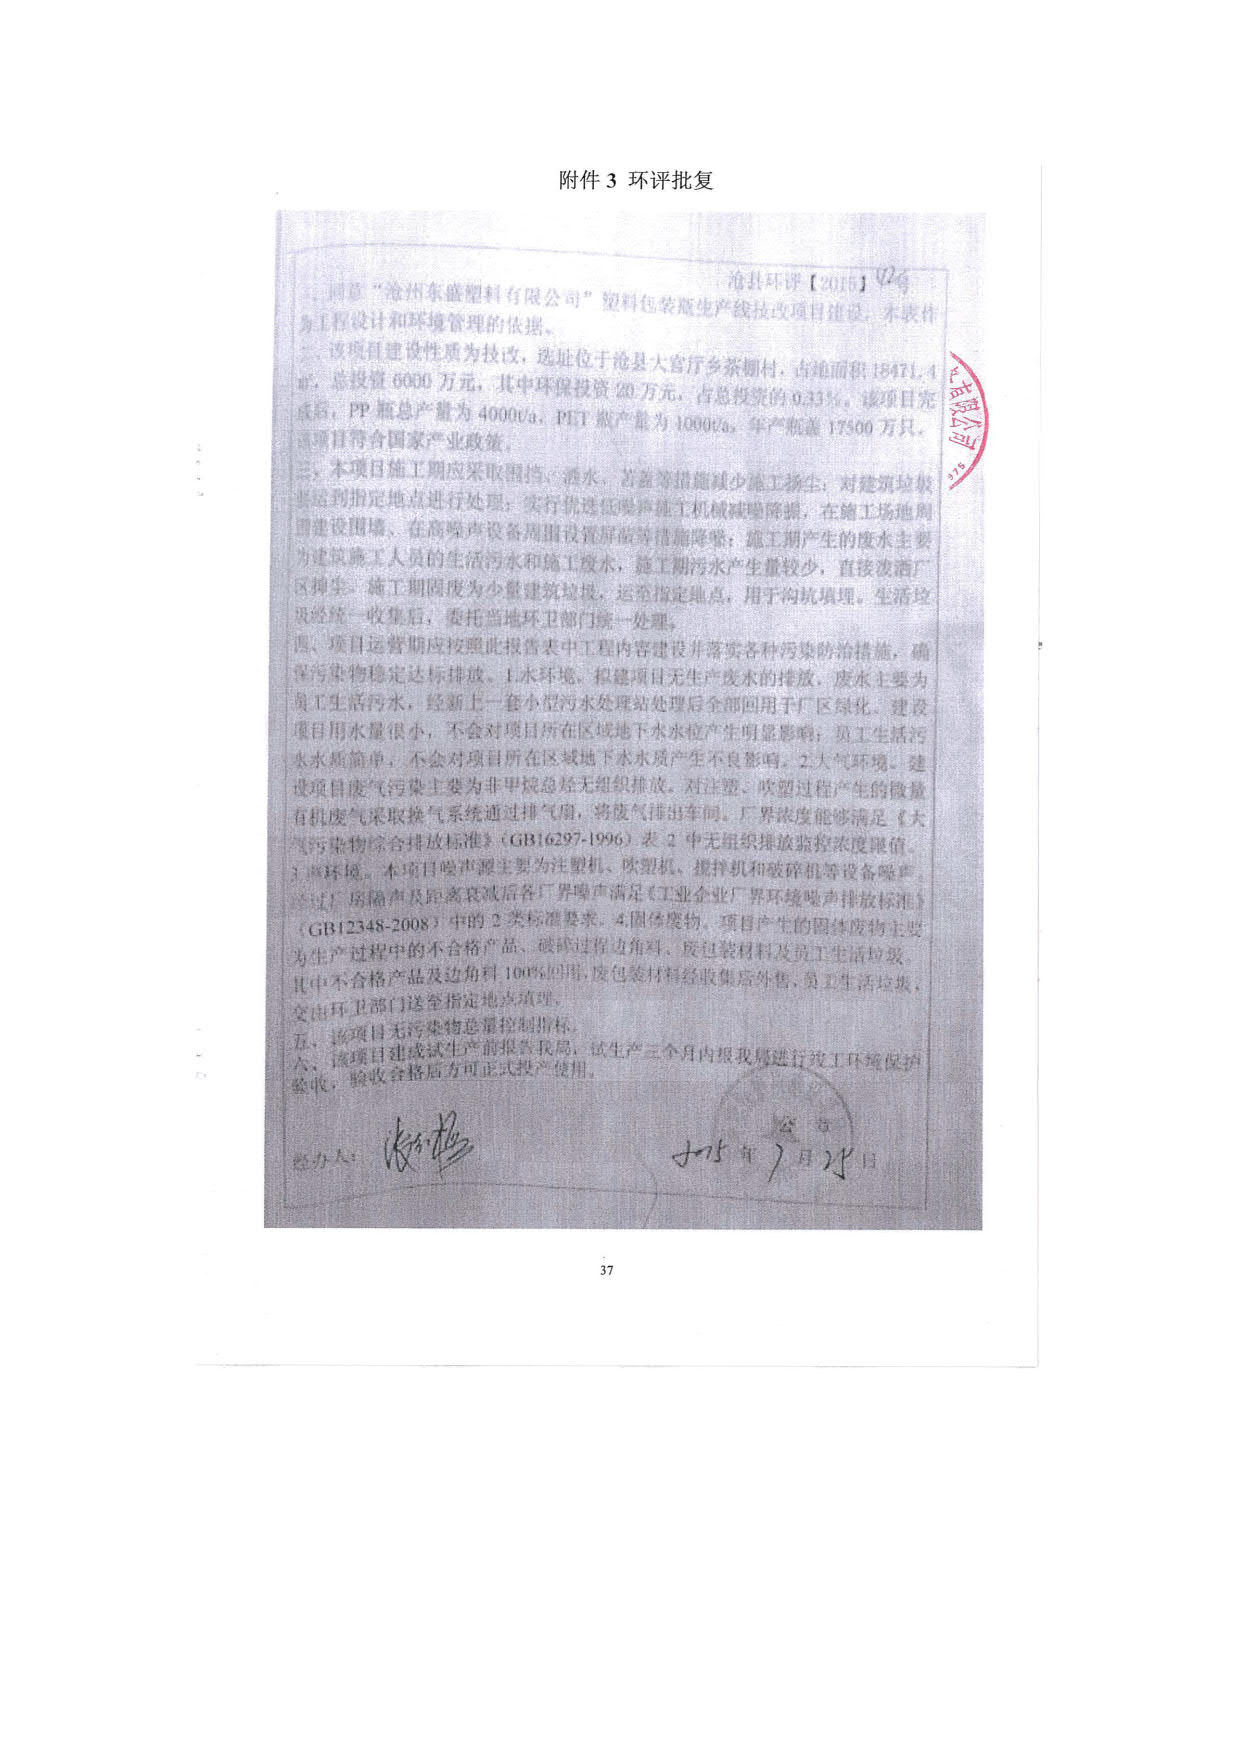 附件 3 环评批复
沧县环评【2015】 号
一、同意“沧州东盛塑料有限公司”塑料包装瓶生产线技改项目建设,本表作
为工程设计和环境管理的依据。
二、该项目建设性质为技改,选址位于沧县大官厅乡茶棚村,占地面积18471.4
㎡,总投资 6000 万元,其中环保投资 20 万元,占总投资的 0.33%。该项目完
成后,PP 瓶总产量为 4000t/a,PET 瓶产量为 1000t/a,年产瓶盖 17500 万只。
该项目符合国家产业政策。
三、本项目施工期应采取围挡、洒水、苫盖等措施减少施工扬尘;对建筑垃圾
运到指定地点进行处理;实行优选低噪声施工机械减噪降振,在施工场地周
围建设围墙、在高噪声设备周围设置屏蔽等措施降噪;施工期产生的废水主要
为建筑施工人员的生活污水和施工废水,施工期污水产生量较少,直接泼洒厂
区抑尘。施工期固废为少量建筑垃圾,运至指定地点,用于沟坑填埋。生活垃
圾经统一收集后,委托当地环卫部门统一处理。
四、项目运营期应按照此报告表中工程内容建设并落实各种污染防治措施,确
保污染物稳定达标排放。1.水环境。拟建项目无生产废水的排放,废水主要为
员工生活污水,经新上一套小型污水处理站处理后全部回用于厂区绿化。建设
项目用水量很小,不会对项目所在区域地下水水位产生明显影响;员工生活污
水水质简单,不会对项目所在区域地下水水质产生不良影响。2.大气环境。建
设项目废气污染主要为非甲烷总烃无组织排放。对注塑、吹塑过程产生的微量
有机废气采取换气系统通过排气扇,将废气排出车间。厂界浓度能够满足《大
气污染物综合排放标准》(GB16297-1996)表 2 中无组织排放监控浓度限值。
3.声环境。本项目噪声源主要为注塑机、吹塑机、搅拌机和破碎机等设备噪声。
经过厂房隔声及距离衰减后各厂界噪声满足《工业企业厂界环境噪声排放标准》
(GB12348-2008)中的 2 类标准要求。4.固体废物。项目产生的固体废物主要
为生产过程中的不合格产品、破碎过程边角料、废包装材料及员工生活垃圾。
其中不合格产品及边角料 100%回用,废包装材料经收集后外售,员工生活垃圾,
交由环卫部门送至指定地点填埋。
五、该项目无污染物总量控制指标。
六、该项目建成试生产前报告我局,试生产三个月内报我局进行竣工环境保护
验收,验收合格后方可正式投产使用。
公 章
经办人:
2015 年 7 月 25 日
有限公司
975
37